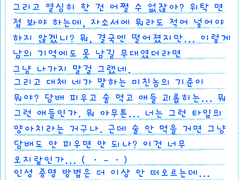 그리고 열심히 한 건 어쩔 수 없잖아? 위탁 면
접 봐야 하는데, 자소서에 뭐라도 적어 넣어야
하지 않겠니? 뭐, 결국엔 떨어졌지만... 이렇게
남의 기억에도 못 남길 무대였더라면
그냥 나가지 말걸 그랬네.
그리고 대체 네가 말하는 미친놈의 기준이
뭐야? 담배 피우고 술 먹고 애들 괴롭히는... 뭐
그런 애들인가. 뭐 아무튼... 너는 그런 타입의
양아치라는 거구나. 근데 술 안 먹을 거면 그냥
담배도 안 피우면 안 되나? 이건 너무
오지랖인가... ( · - · )
인성 증명 방법은 더 이상 안 떠오르는데...